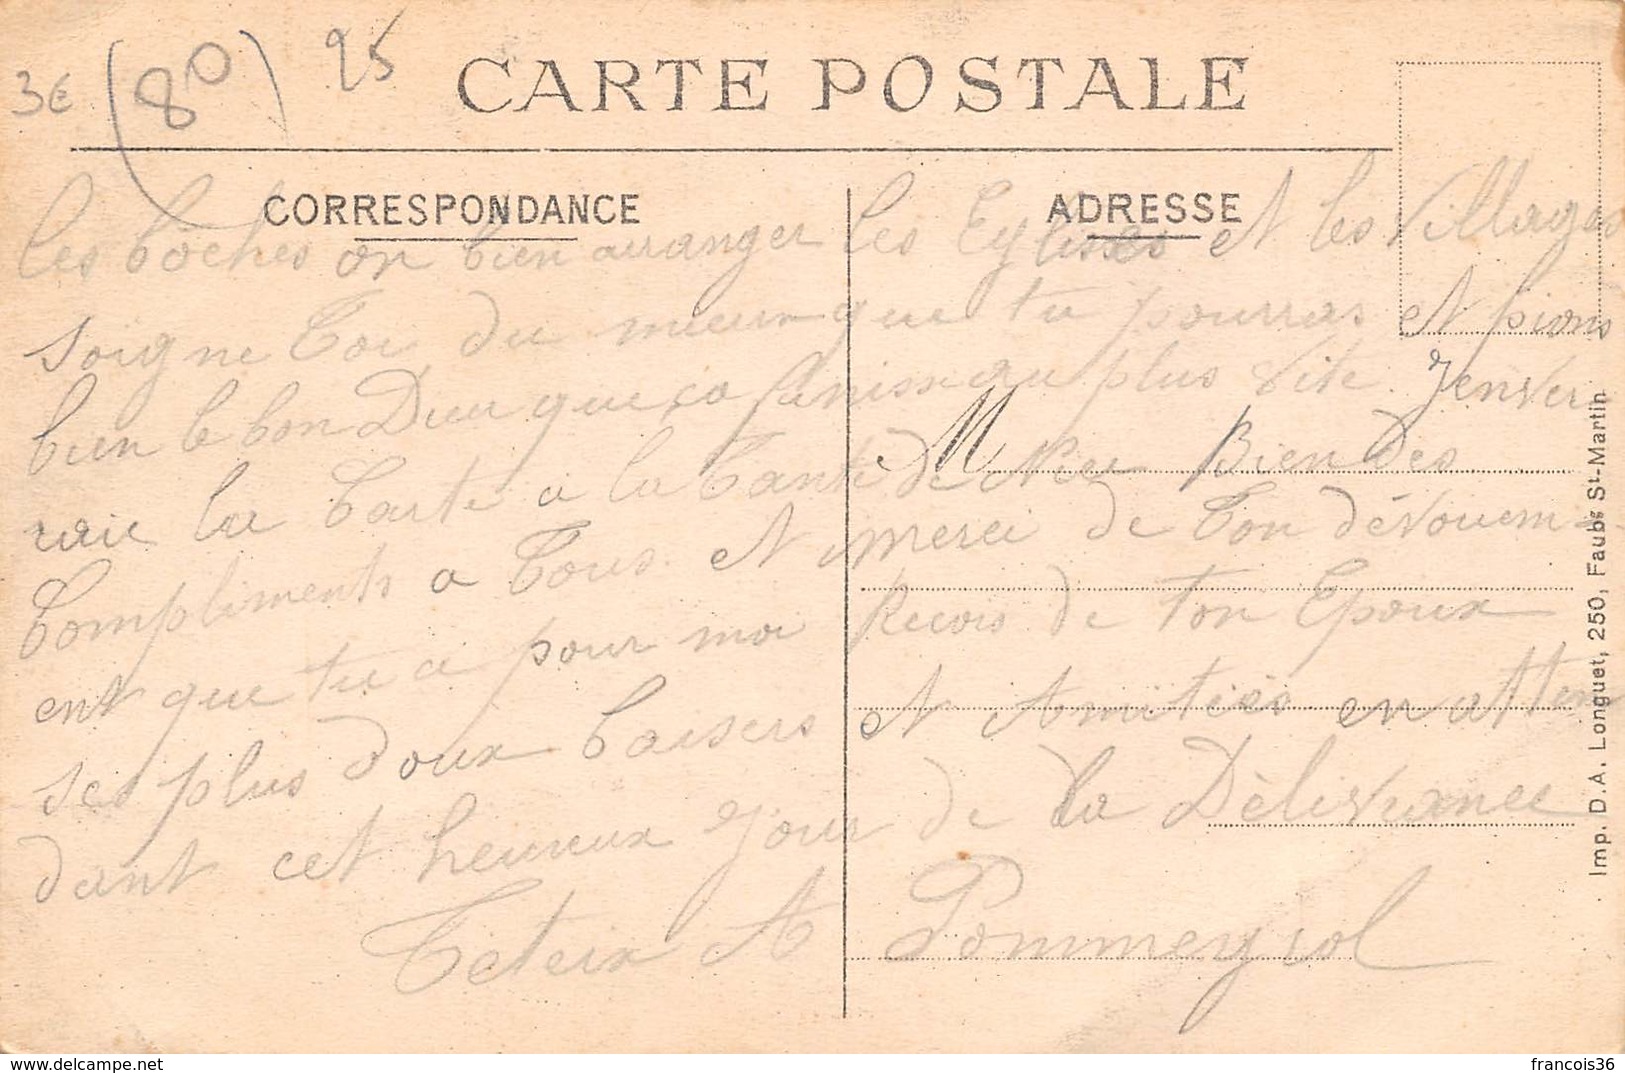 3€ (80) 25
CARTE POSTALE
CORRESPONDANCE
ADRESSE
les boches on bien arranger les Eglisses et les Villages
soigne toi du mieux que tu pourras et prions
bien le bon Dieu que ça finisse au plus vite Jenver
raie la Carte a la Tante de Nice Bien Des
Compliments a Tous et merci de Ton dévouem
ent que tu a pour moi Recois de Ton Epoux
ses plus doux baisers et Amitiés en atten
dant cet heureux jour de la Délivrance
A Pommeyrol
Imp. D.A. Longuet, 250, Faubg St-Martin
francois36